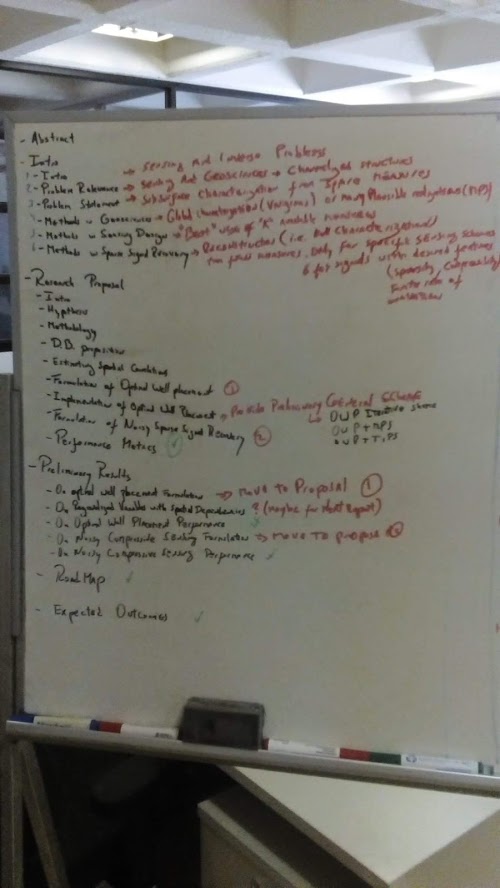 - Abstract
- Intro
1 - Intro → Sensing And Inverse Problems
2 - Problem Relevance → Sensing And Geosciences → Channelized structures
3 - Problem Statement → Subsurface Characterization from measures
- Methods in Geosciences → Global (Variograms) or many Plausible (MPS)
5 - Methods in Sensing Design → "Best" use of "K" available
6 - Methods in Sparse Signal Recovery → Reconstruction (i.e. full characterization)
from few measures. Only for specific Sensing schemes
& for signals with desired features
(sparsity, Compressibility)
- Research Proposal
- Intro
- Hypthesis
- Methodology
- D.B. proposition
- Estimating Spatial
- Formulation of Optimal Well placement 1
- Implementation of Optimal Well Placement → Provide Preliminary General Scheme
↳ OWP Iterative scheme
OWP + MPS
OWP +
- Formulation of Noisy Sparse Signal Recovery 2
- Performance Metrics ✓
- Preliminary Results
- On optimal well placement Formulation → Move to Proposal 1
- On Regionalized Variable with spatial Dependencies ? (maybe for Report)
- On Optimal Well Placement Performance ✓
- On Noisy Compressive Sensing Formulation → Move To propose 2
- On Noisy Compressive Sensing Performance ✓
- RoadMap ✓
- Expected Outcomes ✓